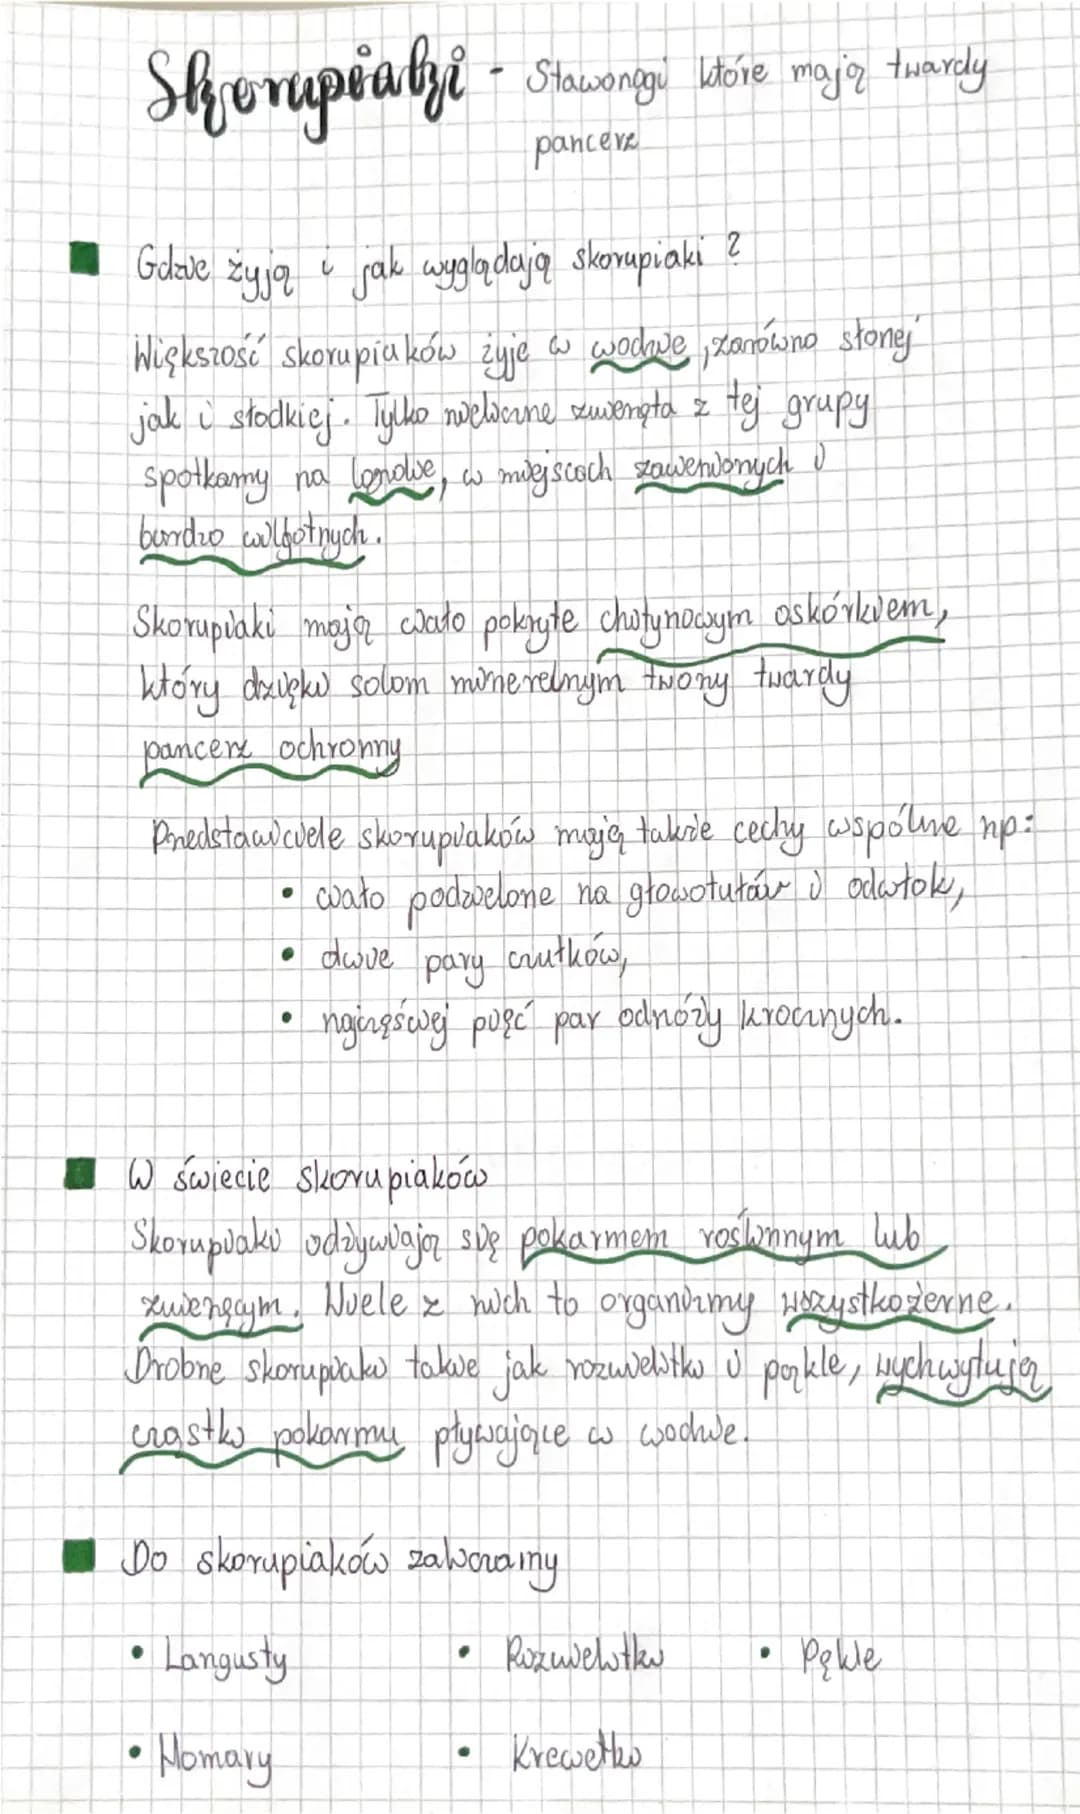 Skorupiaki - Stawonogi które mają twardy
pancerz
Gdzie żyją i jak wyglądają skorupiaki ?
Większość skorupiaków żyje w wodzie, zarówno słonej
jak i słodkiej. Tylko nieliczne zwierzęta z tej grupy
spotkamy na lądzie, w miejscach zacienionych i
bardzo wilgotnych.
Skorupiaki mają ciało pokryte chitynowym oskórkiem,
który dzięki solom mineralnym tworzy twardy
pancerz ochronny
Przedstawiciele skorupiaków mają także cechy wspólne np:
• ciało podzielone na głowotułów i odwłok,
• dwie pary czułków,
• najczęściej pięć par odnóży krocznych.
W świecie skorupiaków
Skorupiaki odżywiają się pokarmem roślinnym lub
zwierzęcym. Wiele z nich to organizmy wszystkożerne.
Drobne skorupiaki takie jak rozwielitki i pąkle, wychwytują
cząstki pokarmu pływające w wodzie.
Do skorupiaków zaliczamy
• Langusty • Rozwielitki • Pąkle
• Homary • Krewetki